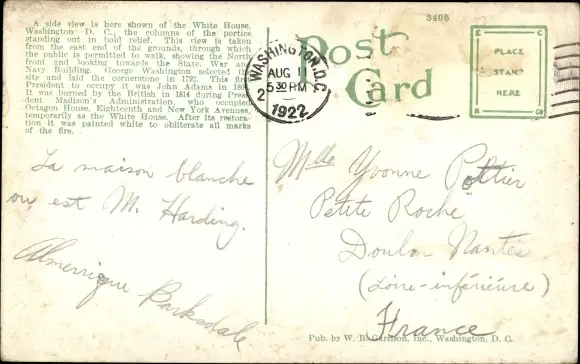 A side view is here shown of the White House,
Washington D. C., the columns of the portico
standing out in bold relief. This view is taken
from the east end of the grounds, through which
the public is permitted to walk, showing the North
front and looking towards the State, War and
Navy Building. George Washington selected the
site and laid the cornerstone in 1792. The first
President to occupy it was John Adams in
It was burned by the British in 1814 during Presi-
dent Madison's Administration, who occupied
Octagon House, Eighteenth and New York Avenues,
temporarily as the White House. After its restora-
tion it was painted white to obliterate all marks
of the fire.
La maison blanche
ou est M. Harding.
Barksdale
WASHINGTON, D.C.
AUG 1
5 30 PM
2
1922
Post
Card
3405
PLACE
STAMP
HERE
Mlle Yvonne Pottier
Petite Roche
Doulon Nantes
(Loire-inférieure)
France
Pub. by W. B. Garrison, Inc., Washington, D. C.